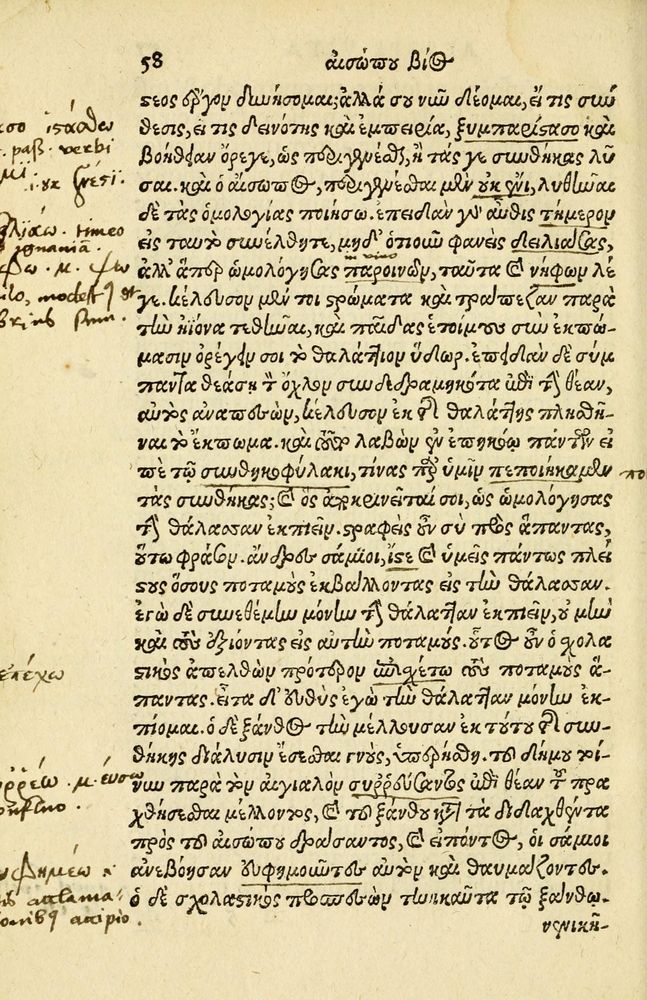 58 αἰσώπου βίος
στεος ἔργον δυνήσομαι; ἀλλά σου νῦν δέομαι, εἴ τις σύν
θεσις, εἴ τις δεινότης καὶ ἐμπειρία, ξυμπαρίστασο καὶ
βοήθειαν ὄρεγε, ὡς περιγενέσθαι, ἢ τάς γε συνθήκας λῦ
σαι. καὶ ὁ αἴσωπος, περιγενέσθαι μὲν οὐκ ἔνι, λυθῆναι
δὲ τὰς ὁμολογίας ποιήσω. ἐπειδὰν γὰρ αὖθις τήμερον
εἰς ταυτὸ συνέλθητε, μηδ' ὁπιοῦν φανεὶς δειλιάσας,
in vino
ἀλλ' ἅπερ ὡμολόγησας παροινῶν, ταῦτα καὶ νήφων λέ
γε. κέλευσον μέν τοι στρώματα καὶ τράπεζαν παρὰ
τὴν ἠϊόνα τεθῆναι, καὶ παῖδας ἑτοίμους σὺν ἐκπώ-
μασιν ὀρέγειν σοι τὸ θαλάττιον ὕδωρ. ἐπειδὰν δὲ σύμ
παντα θεάσῃ τὸν ὄχλον συνδεδραμηκότα ἐπὶ τὴν θέαν,
αὐτὸς ἀναπεσὼν, κέλευσον ἐκ τῆς θαλάττης πλησθῆ-
ναι τὸ ἔκπωμα. καὶ τοῦτο λαβὼν ἐν ἐπηκόῳ πάντων εἰ
πὲ τῷ συνθηκοφύλακι, τίνας πρὸς ὑμῖν πεποίηκα μὲν
τὰς συνθήκας; καὶ ὃς ἀποκρινεῖταί σοι, ὡς ὡμολόγησας
τὴν θάλασσαν ἐκπιεῖν. στραφεὶς οὖν σὺ πρὸς ἅπαντας,
οὕτω φράσον. ἄνδρες σάμιοι, ἴστε καὶ ὑμεῖς πάντως πλεί
στους ὅσους ποταμοὺς ἐκβάλλοντας εἰς τὴν θάλασσαν.
ἐγὼ δὲ συνεθέμην μόνην τὴν θάλατταν ἐκπιεῖν, οὐ μὴν
καὶ τοὺς ἐξιόντας εἰς αὐτὴν ποταμούς. οὗτος οὖν ὁ σχολα
στικὸς ἀπελθὼν πρότερον ἐπισχέτω τοὺς ποταμοὺς ἅ-
παντας. εἶτα δ' εὐθὺς ἐγὼ τὴν θάλατταν μόνην ἐκ-
πίομαι. ὁ δὲ ξάνθος τὴν μέλλουσαν ἐκ τούτου τῆς συν-
θήκης διάλυσιν ἔσεσθαι γνοὺς, ὑπερήσθη. τοῦ δήμου τοί-
νυν παρὰ τὸν αἰγιαλὸν συῤῥεύσαντος ἐπὶ θέαν τοῦ πρα
χθήσεσθαι μέλλοντος, καὶ τοῦ ξάνθου κατὰ τὰ διδαχθέντα
πρὸς τοῦ αἰσώπου δράσαντος, καὶ εἰπόντος, οἱ σάμιοι
ἀνεβόησαν εὐφημοῦντες αὐτὸν καὶ θαυμάζοντες.
ὁ δὲ σχολαστικὸς προσπεσὼν τηνικαῦτα τῷ ξάνθῳ.
νενικῆ-
paß. verbi
timeo
ignaniā.
ἐπέχω
confluo.
accipio.